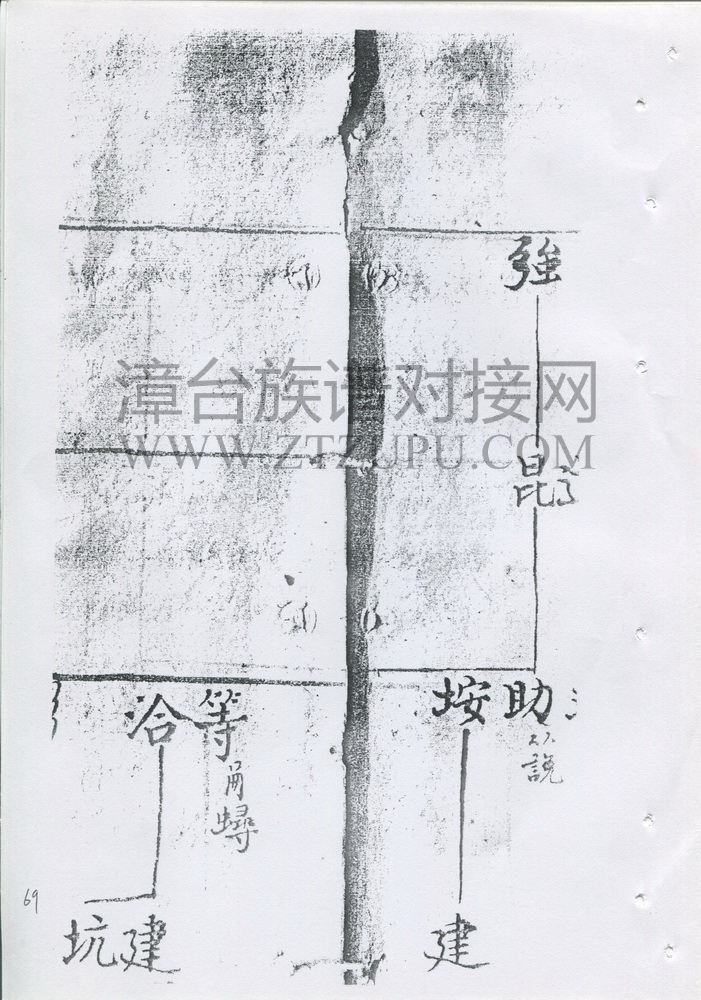 強
漳台族谱对接网
WWW.ZTZUPU.COM
昆
助 垵
説
等 洽
蟳
建
建 坑
69